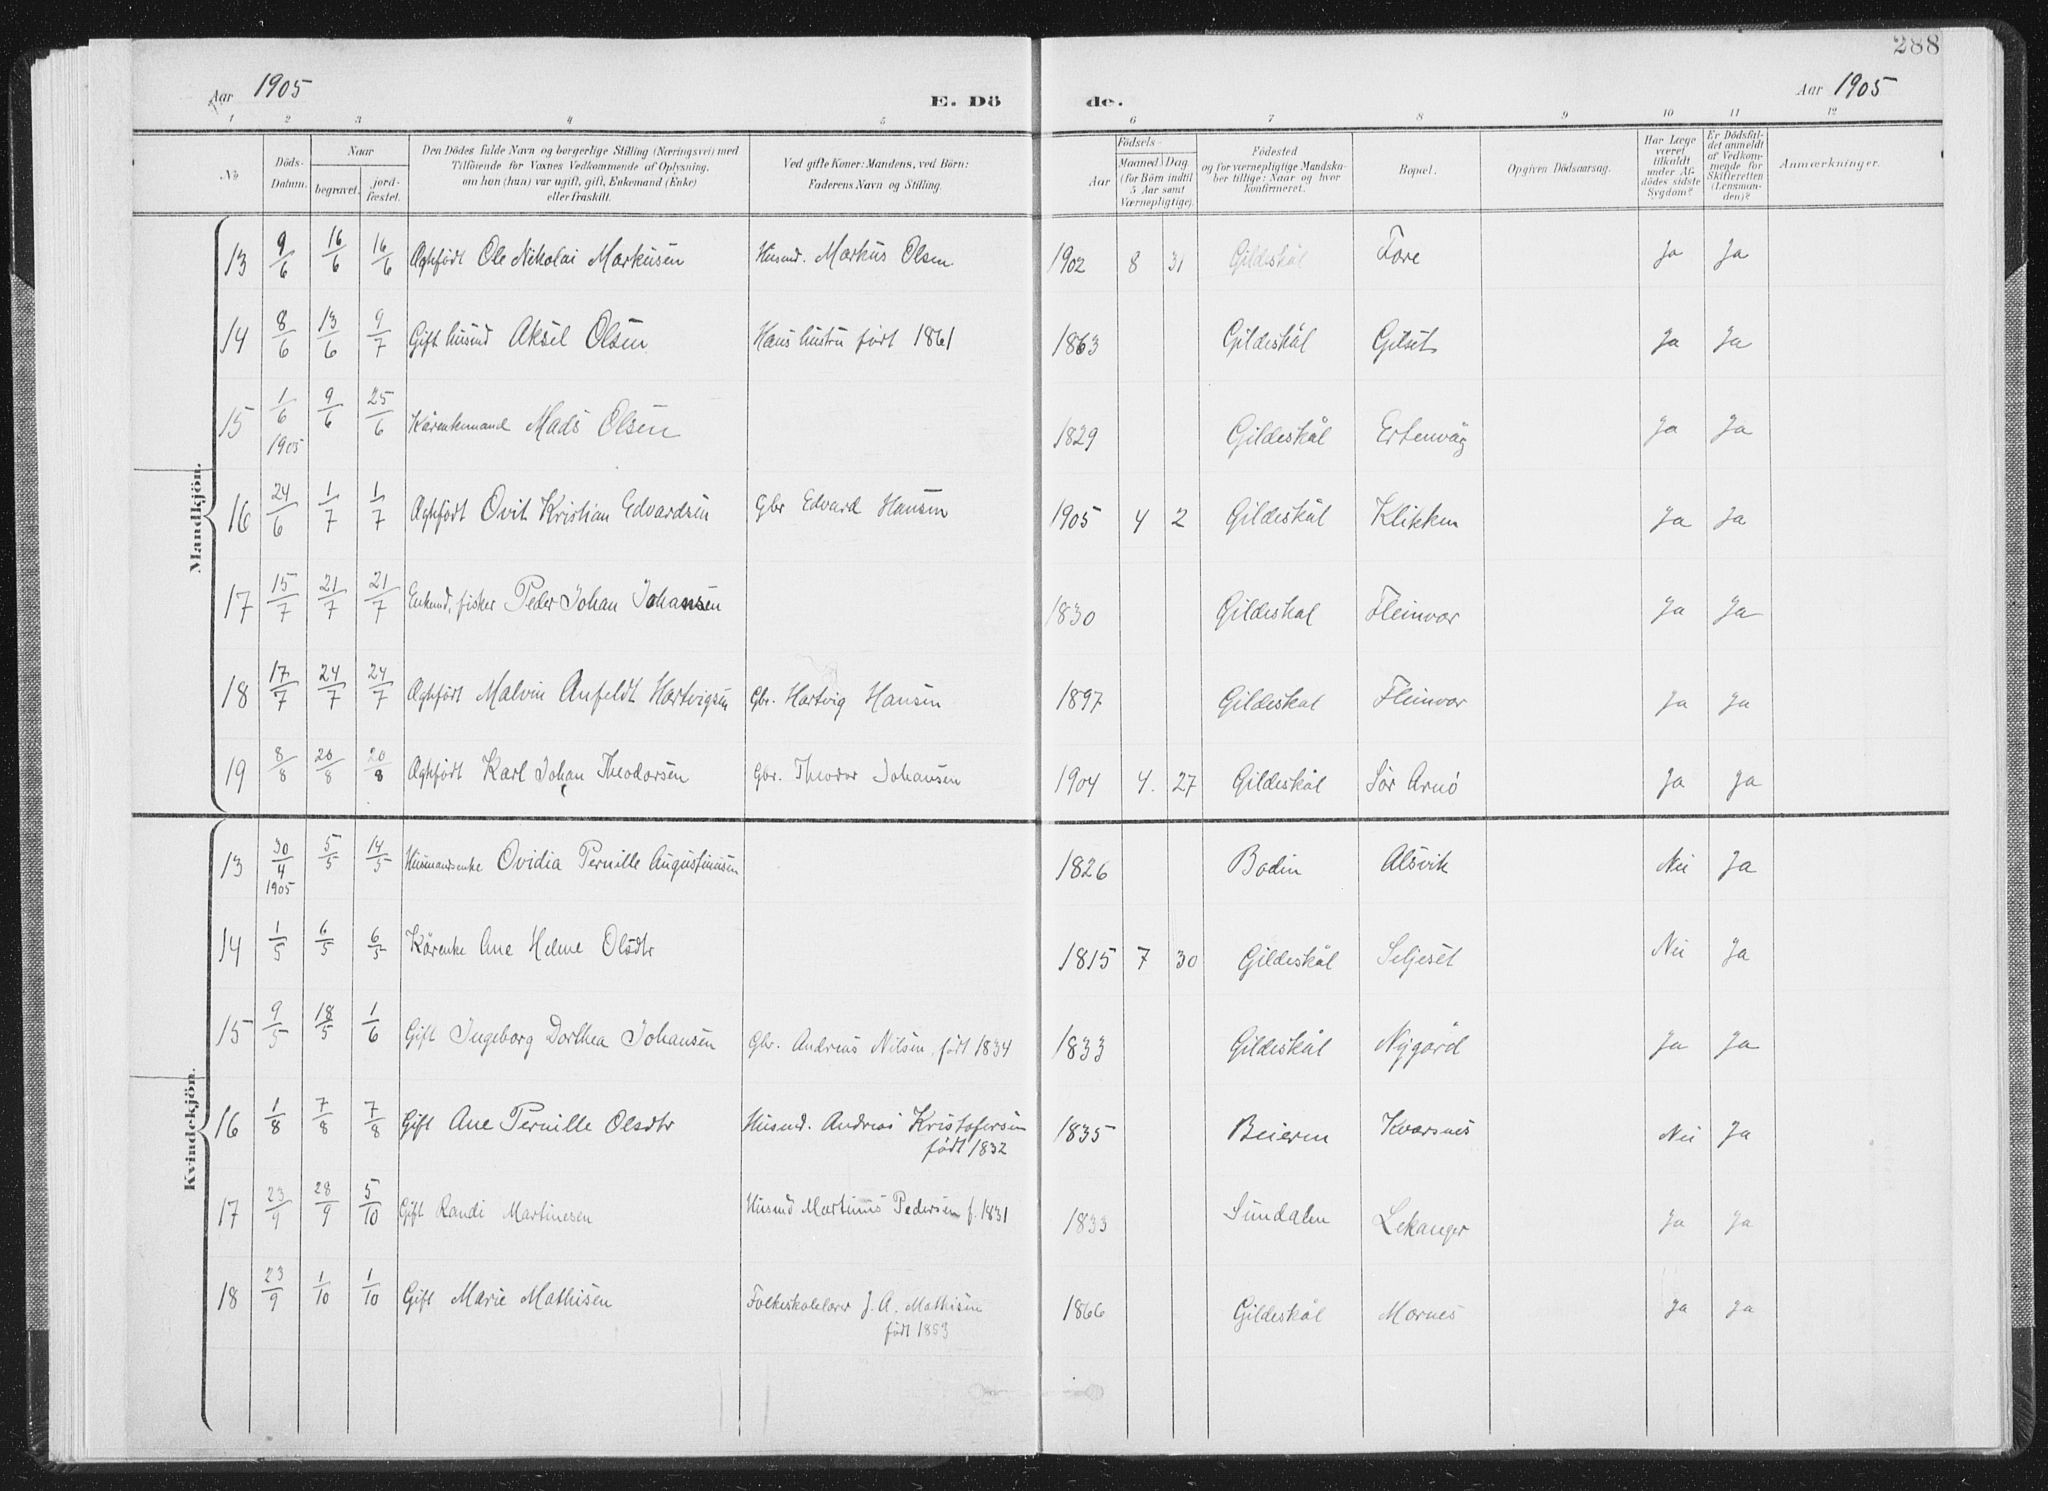 288
Aar 1905 E. Dö de. Aar 1905
1 2 3 4 5 6 7 8 9 10 11 12
No Döds-Datum. Naar begravet. jord-fæstet. Den Dödes fulde Navn og borgerlige Stilling (Næringsvei) med Tilföiende for Voxnes Vedkommende af Oplysning, om han (hun) var ugift, gift, Enkemand (Enke) eller fraskilt. Ved gifte Koner: Mandens, ved Börn: Faderens Navn og Stilling. Födsels- Aar Maaned Dag (for Börn indtil 5 Aar samt Værnepligtige). Födested og for værnepligtige Mandska-ber tillige: Naar og hvor konfirmeret. Bopæl. Opgiven Dödsaarsag. Har Læge været tilkaldt under Af-dödes sidste Sygdom? Er Dödsfal-det anmeldt af Vedkom-mende for Skifteretten (Lensman-den)? Anmærkninger.
Mandkjön.
13 9/6 16/6 16/6 Ægtefödt Ole Nikolai Markusen Husmd. Markus Olsen 1902 8 31 Gildeskål Fore Ja Ja
14 8/6 13/6 9/7 Gift husmd Aksel Olsen Hans hustru født 1861 1863 Gildeskål Gilset Ja Ja
15 1/6 1905 9/6 25/6 Kårenkemand Mads Olsen 1829 Gildeskål Ertenvåg Ja Ja
16 24/6 1/7 1/7 Ægtefödt Ovit Kristian Edvardsen Gbr Edvard Hansen 1905 4 2 Gildeskål Klikken Ja Ja
17 15/7 21/7 21/7 Enkemd, fisker Peder Johan Johansen 1830 Gildeskal Fleinvær Ja Ja
18 17/7 24/7 24/7 Ægtefödt Malvin Anfeldt Hartvigsen Gbr. Hartvig Hansen 1897 Gildeskal Fleinvær Ja Ja
19 8/8 20/8 20/8 Ægtefödt Karl Johan Theodorsen Gbr. Theodor Johansen 1904 4. 27 Gildeskål Sör Arnö Ja Ja
Kvindekjön.
13 30/4 1905 5/5 14/5 Husmandsenke Ovidia Pernille Augustinusen 1826 Bodin Alsvik Nei Ja
14 1/5 6/5 6/5 Kårenke Ane Helene Olsdtr 1815 7 30 Gildeskål Seljeset Nei Ja
15 9/5 18/5 1/6 Gift Ingeborg Dorthea Johansen Gbr. Andreas Nilsen, født 1834 1833 Gildeskål Nygård Ja Ja
16 1/8 7/8 7/8 Gift Ane Pernille Olsdtr Husmd. Andreas Kristofersen 1835 Beieren Kvarsnes Nei Ja
født 1832
17 23/9 28/9 5/10 Gift Randi Martinesen Husmd Martinus Pedersen f. 1831 1833 Sundalen Lekanger Ja Ja
18 23/9 1/10 1/10 Gift Marie Mathisen Folkeskolelærer J. A. Mathisen 1866 Gildeskål Mornes Ja Ja
født 1853